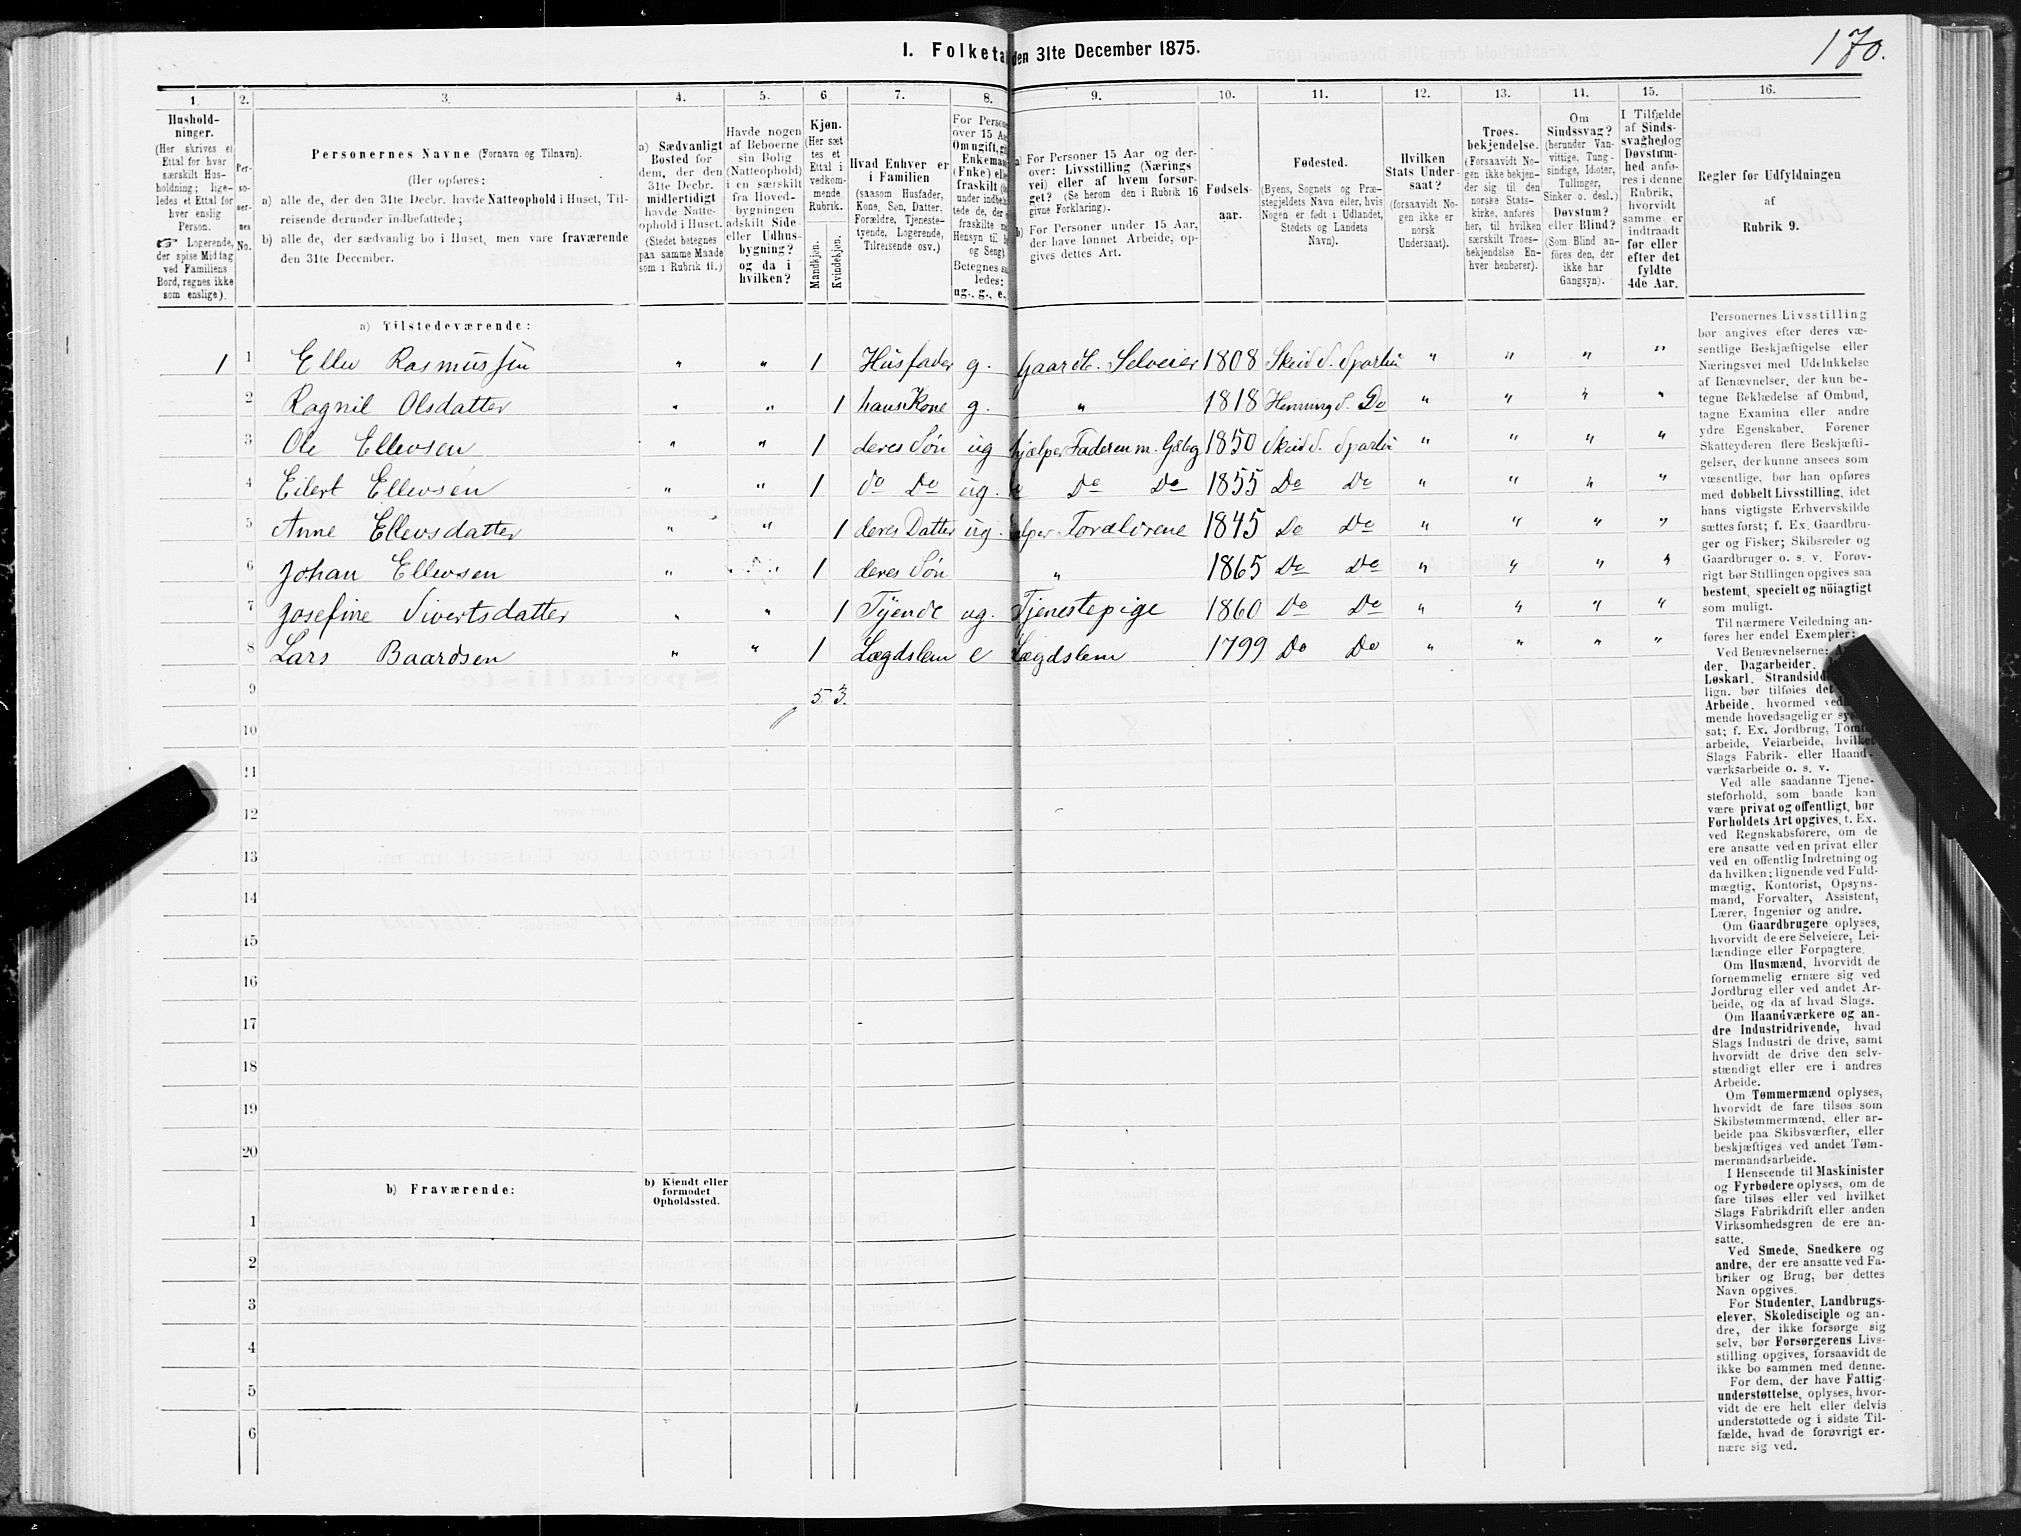 170.
I. Folketal den 31te December 1875.
1. 2. 3. 4. 5. 6. 7. 8. 9. 10. 11. 12. 13. 14. 15. 16.
Hushold-
ninger.
(Her skrives et
Ettal for hver
særskilt Hus-
holdning; lige-
ledes et Ettal for
hver enslig
Person.
☞ Logerende,
der spise Middag
ved Familiens
Bord, regnes ikke
som enslige).
Per-
so-
ner-
nes
No.
Personernes Navne (Fornavn og Tilnavn).
(Her opføres:
a) alle de, der den 31te Decbr. havde Natteophold i Huset, Til-
reisende derunder indbefattede;
b) alle de, der sædvanlig bo i Huset, men vare fraværende
den 31te December.
a) Sædvanligt
Bosted for
dem, der den
31te Decbr.
midlertidigt
havde Natte-
ophold i Huset.
(Stedet betegnes
paa samme Maade
som i Rubrik 11.)
Havde nogen
af Beboerne
sin Bolig
(Natteophold)
i en særskilt
fra Hoved-
bygningen
adskilt Side-
eller Udhus-
bygning?
og da i
hvilken?
Kjøn.
(Her sæt-
tes et
Ettal i
vedkom-
mende
Rubrik.
Mandkjøn.
Kvindekjøn.
Hvad Enhver er
i Familien
(saasom Husfader,
Kone, Søn, Datter,
Forældre, Tjeneste-
tyende, Logerende,
Tilreisende osv.)
For Persone
over 15 Aa
Om ugift, gi
Enkeman
(Enke) elle
fraskilt
Hensyn til
og Seng).
Betegnes
ledes:
ug., g., e.,
a) For Personer 15 Aar og der-
over: Livsstilling (Nærings
vei) eller af hvem forsør-
get? (Se herom den i Rubrik 16
givne Forklaring).
b) For Personer under 15 Aar,
der have lønnet Arbeide, op-
gives dettes Art.
Fødsels-
aar.
Fødested.
(Byens, Sognets og Præ-
stegjeldets Navn eller, hvis
Nogen er født i Udlandet,
Stedets og Landets
Navn).
Hvilken
Stats Under-
saat?
(forsaavidt No-
gen ikke er
norsk
Undersaat).
Troes-
bekjendelse.
(Forsaavidt No-
gen ikke bekjen-
der sig til den
norske Stats-
kirke, anføres
her, til hvilken
særskilt Troes-
bekjendelse En-
hver henhører).
Om
Sindssvag?
(herunder Van-
vittige, Tung-
sindige, Idioter,
Tullinger,
Sinker o. desl.)
Døvstum?
eller Blind?
(Som Blind an-
føres den, der
ikke har
Gangsyn).
I Tilfælde
af Sinds-
svaghed og
Døvstum-
hed anfø-
res i denne
Rubrik,
hvorvidt
samme er
indtraadt
før eller
efter det
fyldte
4de Aar.
Regler for Udfyldningen
af
Rubrik 9.
a) Tilstedeværende:
1 1 Ellev Rasmussen " " 1 Husfader g. Gaardb. Selveier 1808 Skeid S. Sparbu " " " "
2 Ragnil Olsdatter " " 1 hans Kone g. " 1818 Henning S. Do " " " "
3 Ole Ellevsen " " 1 deres Søn ug hjælper Faderen m. Gdbg 1850 Skeid S. Sparbu " " " "
4 Eilert Ellevsen " " 1 do Do ug. Do Do 1855 Do Do " " " "
5 Anne Ellevsdatter " " 1 deres Datter ug. Forældrene 1845 Do Do " " " "
6 Johan Ellevsen " " 1 deres Søn " 1865 Do Do " " " "
7 Josefine Sivertsdatter " " 1 Tjende ug. Tjenestepige 1860 Do Do " " " "
8 Lars Baardsen " " 1 Lægdslem e Lægdslem 1799 Do Do " " " "
9 5 3.
10
11
12
13
14
15
16
17
18
19
20
b) Fraværende:
b) Kjendt eller
formodet
Opholdssted.
1
2
3
4
5
6
Personernes Livsstilling
bør angives efter deres væ-
sentlige Beskjæftigelse eller
Næringsvei med Udelukkelse
af Benævnelser, der kun be-
tegne Beklædelse af Ombud,
tagne Examina eller andre
ydre Egenskaber. Forener
Skatteyderen flere Beskjæfti-
gelser, der kunne ansees som
væsentlige, bør han opføres
med dobbelt Livsstilling, idet
hans vigtigste Erhvervskilde
sættes først; f. Ex. Gaardbru-
ger og Fisker; Skibsreder og
Gaardbruger o. s. v. Forøv-
rigt bør Stillingen opgives saa
bestemt, specielt og nöiagtigt
som muligt.
Til nærmere Veiledning an-
føres her endel Exempler:
Ved Benævnelserne:
der, Dagarbeider,
Løskarl, Strandsidd
lign. bør tilføies det
Arbeide, hvormed ved
mende hovedsagelig er sys
sat; f. Ex. Jordbrug, Tømt
arbeide, Veiarbeide, hvilket
Slags Fabrik- eller Haand-
værksarbeide o. s. v.
Ved alle saadanne Tjene-
steforhold, som baade kan
være privat og offentligt, bør
Forholdets Art opgives, f. Ex.
ved Regnskabsførere, om de
ere ansatte ved en privat eller
ved en offentlig Indretning og
da hvilken; lignende ved Fuld-
mægtig, Kontorist, Opsyns-
mand, Forvalter, Assistent,
Lærer, Ingeniør og andre.
Om Gaardbrugere oplyses,
hvorvidt de ere Selveiere, Lei-
lændinge eller Forpagtere.
Om Husmænd, hvorvidt de
fornemmelig ernære sig ved
Jordbrug eller ved andet Ar-
beide, og da af hvad Slags.
Om Haandværkere og an-
dre Industridrivende, hvad
Slags Industri de drive, samt
hvorvidt de drive den selv-
stændigt eller ere i andres
Arbeide.
Om Tømmermænd oplyses,
hvorvidt de fare tilsøs som
Skibstømmermænd, eller ar-
beide paa Skibsværfter, eller
beskjæftiges ved andet Tøm-
mermandsarbeide.
I Henseende til Maskinister
og Fyrbødere oplyses, om de
fare tilsøs eller ved hvilket
Slags Fabrikdrift eller anden
Virksomhedsgren de ere an-
satte.
Ved Smede, Snedkere og
andre, der ere ansatte ved Fa-
briker og Brug, bør dettes
Navn opgives.
For Studenter, Landbrugs-
elever, Skoledisciple og an-
dre, der ikke forsørge sig
selv, bør Forsørgerens Livs-
stilling opgives, forsaavidt de
ikke bo sammen med denne.
For dem, der have Fattig-
understøttelse, oplyses, hvor-
vidt de ere helt eller delvis
understøttede og i sidste Til-
fælde, hvad de forøvrigt er-
nære sig ved.